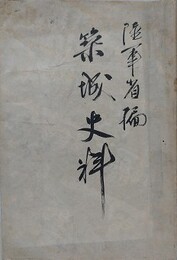 陸軍省編
築城史料